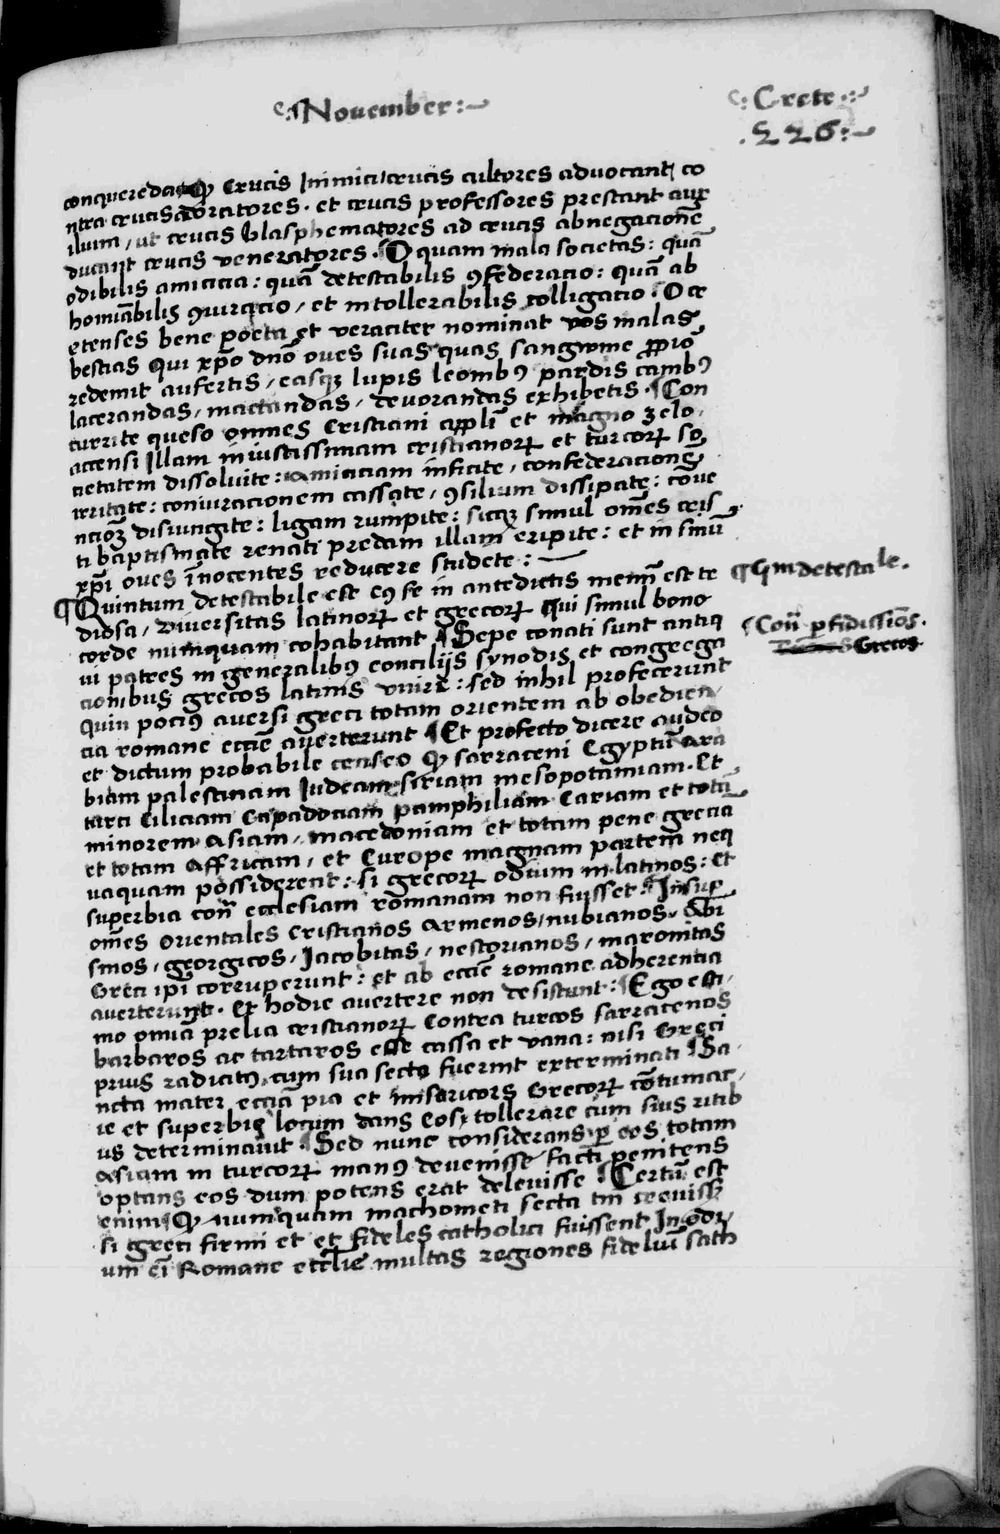 November
Crete
226
conqueredat ꝙ Crucis Inimici crucis cultores advocant co
ntra crucis adoratores. et crucis professores prestant aux
ilium, ut crucis blasphematores ad crucis abnegacionē
ducant crucis veneratores. O quam mala societas: quā
odibilis amicicia: quā detestabilis ꝯfederacio: quā ab
homīabilis ꝯiuracio, et intollerabilis colligacio. O cr
etenses bene poeta et veraciter nominat vos malas
bestias Qui xp̄o dn̄o oves suas quas sangwine ꝓprio
redemit aufertis, easqꝫ lupis leonibꝰ pardis canibꝰ
lacerandas, mactandas, devorandas exhibetis. Con
currite queso omnes Cristiani appl̄i et magno zelo
accensi Illam iniustissimam cristianorꝝ et turcorꝝ so
cietatem dissoluite: amiciciam inficite, confederacionē
irritate: coniuracionem cassate, ꝯsilium dissipate: cōve
ncioꝫ disiungite: ligam rumpite: sicqꝫ simul om̄es cris
ti baptismate renati predam illam eripite: et in sinū
xp̄i oves īnocentes reducere studete:
Quintum detestabile est eꝰ se in antedictis mem̄ est te
diosa, diversitas latinorꝝ et grecorꝝ qui simul bono
corde numquam cohabitant Sepe conati sunt antiq
ui patres in generalibꝰ concilijs synodis et congrega
cionibus grecos latinis vnire: sed inhil profecerunt
quin pociꝰ aversi greci totam orientem ab obedien
cia romane eccīe averterunt Et profecto dicere audeo
et dictum probabile censeo ꝙ sarraceni Egyptū ara
biam palestinam Iudeam siriam mesopotamiam. Et
turci Ciliciam Capadociam pamphiliam Cariam et totā
minorem asiam, macedoniam et totam pene greciā
et totam affricam, et Europe magnam partem neq
uaquam possiderent: si grecorꝝ odium in latinos: et
superbia con̄ ecclesiam romanam non fuisset. Insup
om̄es orientales Cristianos armenos, nubianos, Abi
smos, georgicos, Iacobitas, nestorianos, maronitas
Greci ipi corruperunt: et ab eccīe romane adherentia
averterunt. Et hodie avertere non desistunt: Ego esti
mo omīa prelia cristianorꝝ Contra turcos sarracenos
barbaros ac tartaros esse cassa et vana: nisi Greci
prius radicitꝰ cum sua secta fuerint exterminati Sa
ncta mater ecciā pia et misericors Grecorꝝ cōtumac
ie et superbie locum dans Eos tollerare cum suis ritib
us determinavit Sed nunc considerans ꝑ eos totam
asiam in turcorꝝ manꝰ devenisse facti penitens
optans eos dum potens erat delevisse Certū est
enim ꝙ numquam machometi secta tm̄ crevissꝫ
si greci firmi et et fideles catholici fuissent In odi
um eī Romane ecclīe multas regiones fideliū sath
Qm detestale.
Con̄ ꝑfidissīos
Grecos